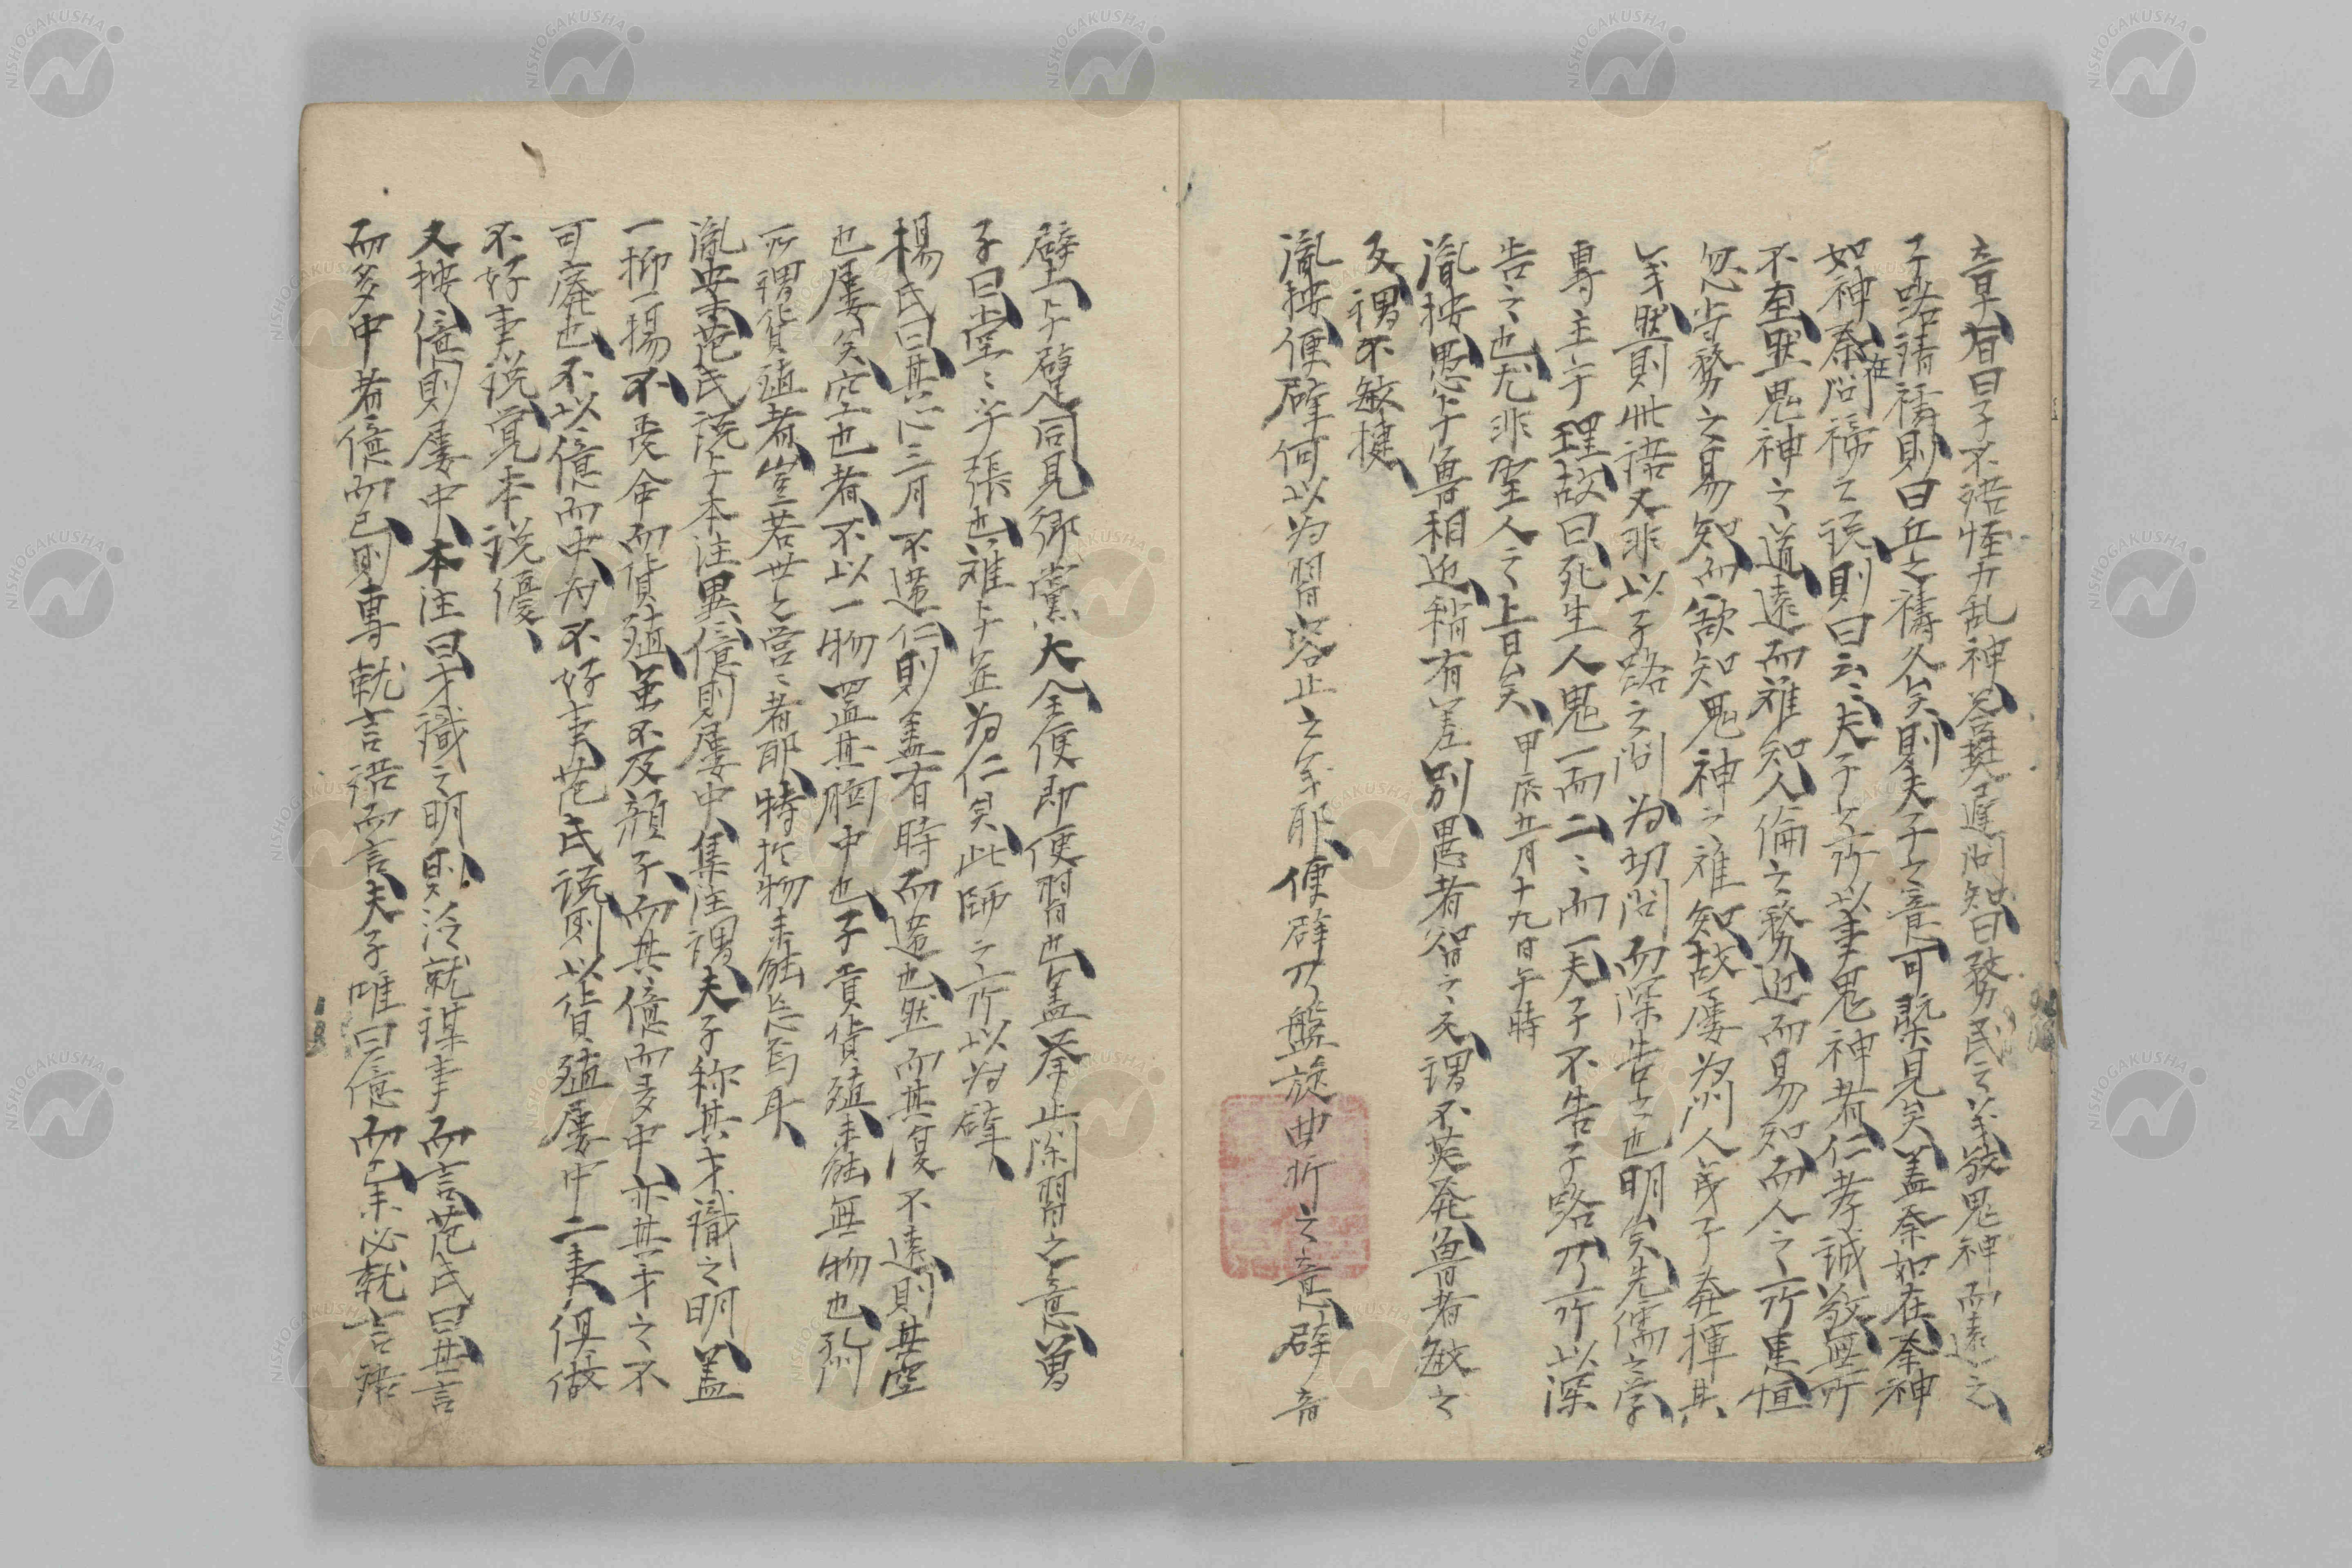 章有曰子不語怪力乱神答樊遅問知曰務民之義敬鬼神而遠之
子路請禱則曰丘之禱久矣則夫子之意可槩見矣盖祭如在祭神
如神在祭問禘之説則曰云〻夫子之所以事鬼神者仁孝誠敬無所
不至然鬼神之道遠而難知人倫之務近而易知而人之所患恒
忽当務之易知而欲知鬼神之難知故屢為門人弟子発揮其
義然則此語又非以子路之問為切問而深告之也明矣先儒之学
専主于理故曰死生人鬼一而二〻而一夫子不告子路乃所以深
告之也尤非聖人之上旨矣 甲辰五月十九日午時
胤按愚与魯相近稍有差別愚者智之反謂不英発魯者敏之
反謂不敏捷
胤按便辟何以為習容止之義耶便辟乃盤旋曲折之意辟音
壁与躄同見郷黨大全便即便習也盖挙止閑習之意曽
子曰堂〻乎張也難与並為仁矣此師之所以為辟
楊氏曰其心三月不違仁則盖有時而違也然而其復不遠則其空
也屢矣空也者不以一物置其胸中也子貢貨殖未能無物也所
所謂貨殖者豈若世之営〻者耶特於物未能忘焉耳
胤按范氏説与本注異億則屢中集注謂夫子称其才識之明盖
一抑一揚不受命而貨殖虽不及顔子而其億而多中亦其才之不
可廃也不以億而中為不好事范氏説則以貨殖屢中二事倶做
不好事説覚本説優
又按億則屢中本注曰才識之明則泛就謀事而言范氏曰其言
而多中者億而已則専就言語而言夫子唯曰億而已未必就言語
NISHOGAKUSHA